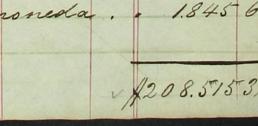 moneda . . 1.845 6
$208.515 3